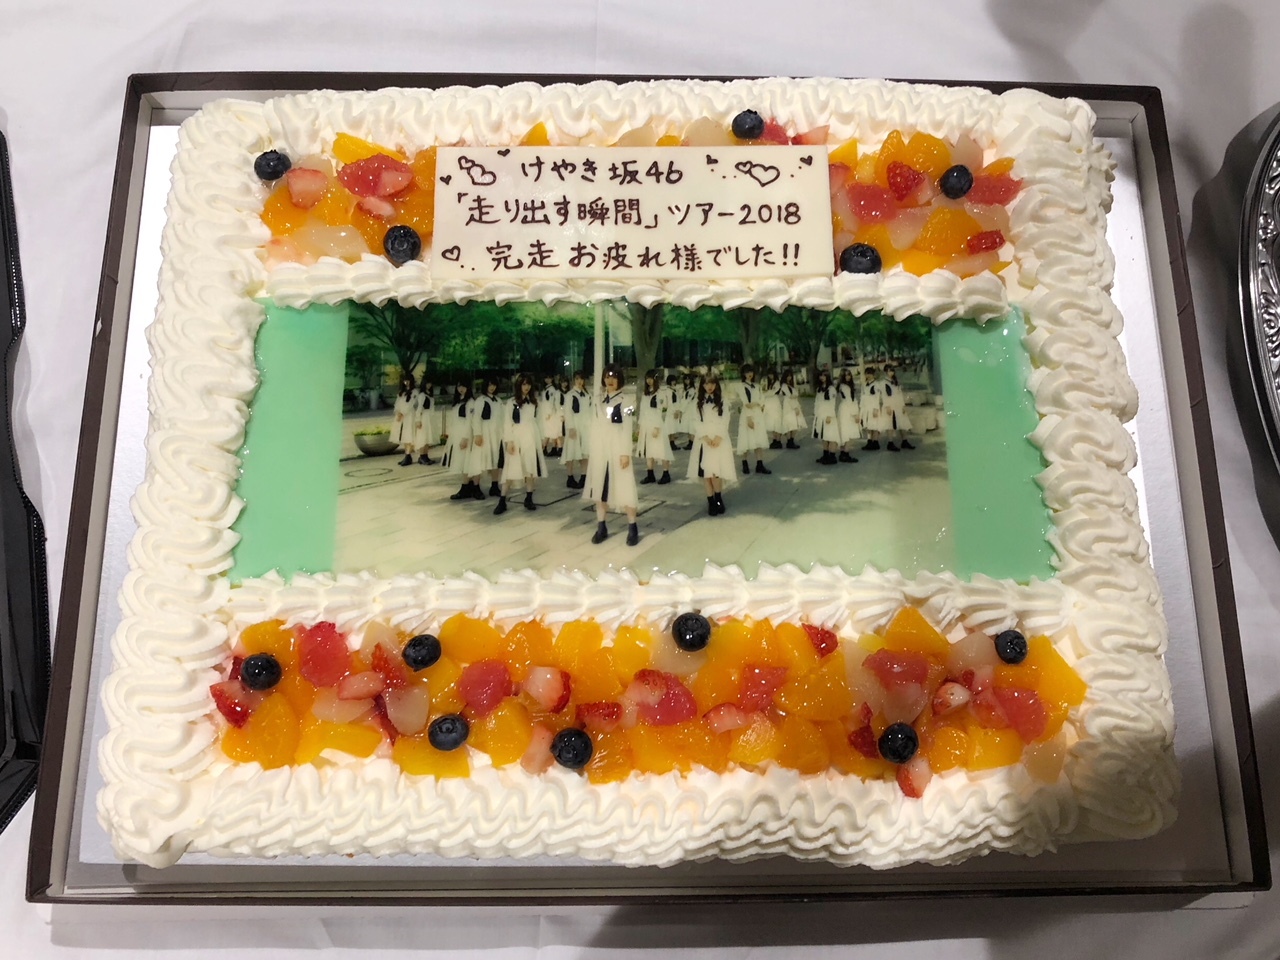 けやき坂46
「走り出す瞬間」ツアー2018
完走 お疲れ様でした!!